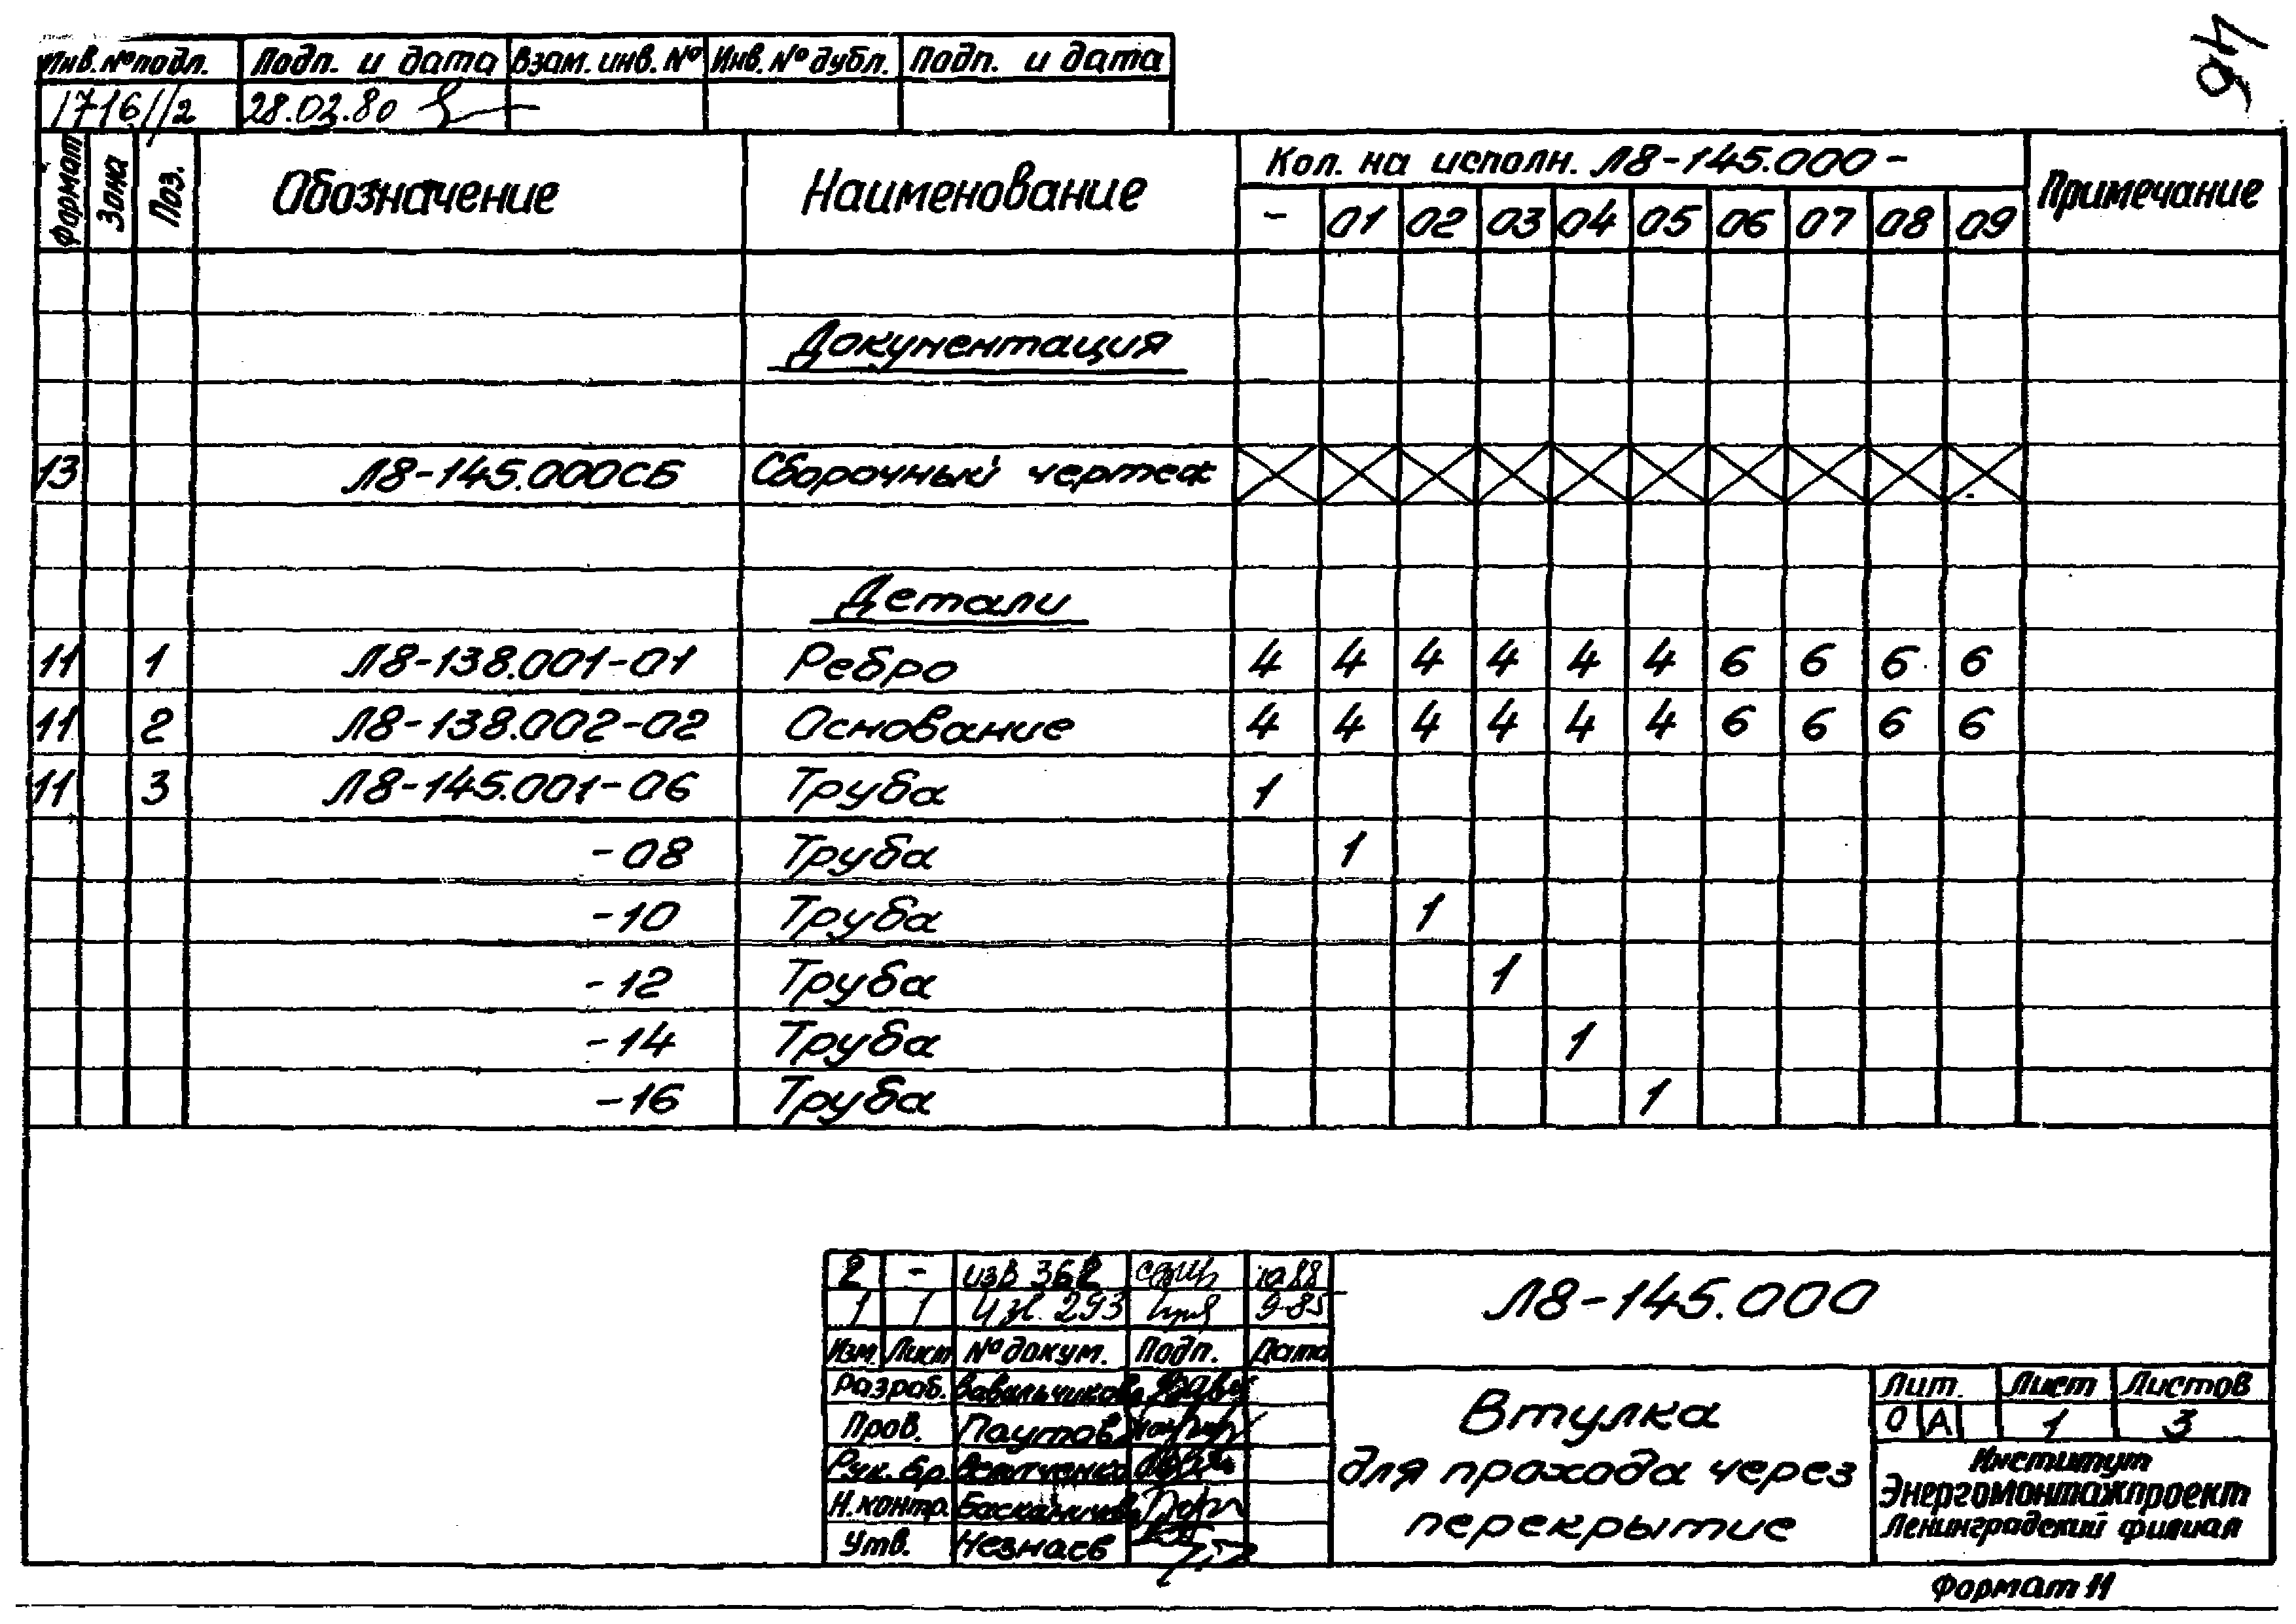 46
Инв.№подл. Подп. и дата Взам.инв.№ Инв.№дубл. Подп. и дата
1716//2 28.02.80
Формат Зона Поз. Обозначение Наименование Кол. на исполн. Л8-145.000- Примечание
- 01 02 03 04 05 06 07 08 09
Документация
13 Л8-145.000СБ Сборочный чертеж
Детали
11 1 Л8-138.001-01 Ребро 4 4 4 4 4 4 6 6 6 6
11 2 Л8-138.002-02 Основание 4 4 4 4 4 4 6 6 6 6
11 3 Л8-145.001-06 Труба 1
-08 Труба 1
-10 Труба 1
-12 Труба 1
-14 Труба 1
-16 Труба 1
2 - изв 362 10.88
1 1 Изв. 293 9-85
Изм. Лист №докум. Подп. Дата
Л8-145.000
Разраб.
Пров. Паутов
Рук. бр.
Н.контр.
Утв. Незнаев
Втулка
для прохода через
перекрытие
Лит. Лист Листов
О А 1 3
Институт
Энергомонтажпроект
Ленинградский филиал
Формат 11